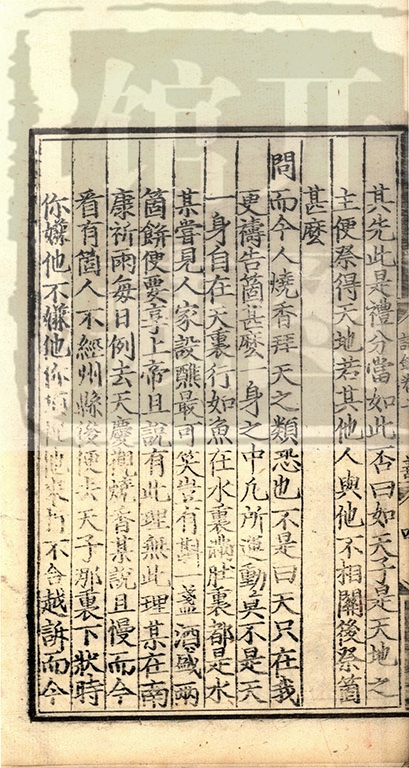 其先此是禮分當如此否曰如天子是天地之
主便祭得天地若其他人與他不相關後祭箇
甚麼
問而今人燒香拜天之類恐也不是曰天只在我
更禱告箇甚麼一身之中凡所運動莫不是天
一身自在天裏行如魚在水裏滿肚裏都是水
某嘗見人家設醮最可笑豈有斟一盞酒盛兩
箇餅便要享上帝且說有此理無此理某在南
康祈雨每日例去天慶觀燒香某說且慢而今
看有箇人不經州縣後便去天子那裏下狀時
你嫌他不嫌他你須捉他來打不合越訴而今